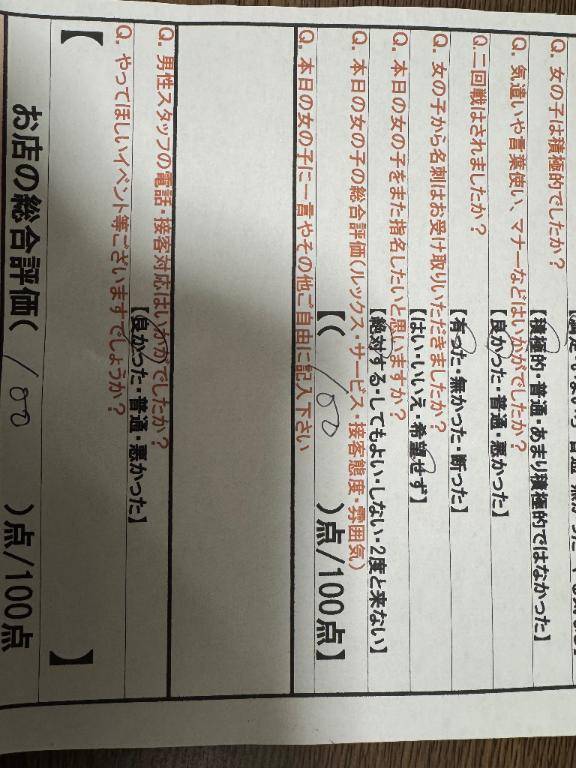 Q. 女の子は積極的でしたか？
【積極的・普通・あまり積極的ではなかった】
Q. 気遣いや言葉使い、マナーなどはいかがでしたか？
【良かった・普通・悪かった】
Q.二回戦はされましたか？
【有った・無かった・断った】
Q. 女の子から名刺はお受け取りいただきましたか？
【はい・いいえ・希望せず】
Q. 本日の女の子をまた指名したいと思いますか？
【絶対する・してもよい・しない・2度と来ない】
Q. 本日の女の子の総合評価(ルックス・サービス・接客態度・雰囲気)
【( 100 )点/100点】
Q. 本日の女の子に一言やその他ご自由に記入下さい
Q. 男性スタッフの電話・接客対応はいかがでしたか？
【良かった・普通・悪かった】
Q. やってほしいイベント等ございますでしょうか？
【 】
お店の総合評価( 100 )点/100点